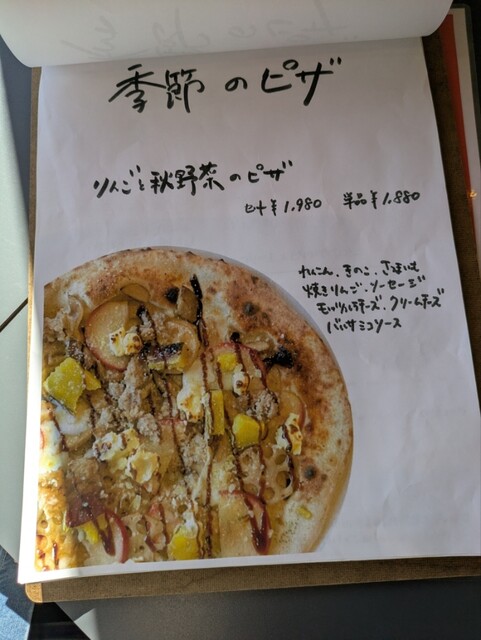 季節のピザ
りんごと秋野菜のピザ
セット¥1,980 単品¥1,880
れんこん、きのこ、さつまいも
焼きりんご、ソーセージ
モッツァレラチーズ、クリームチーズ
バルサミコソース